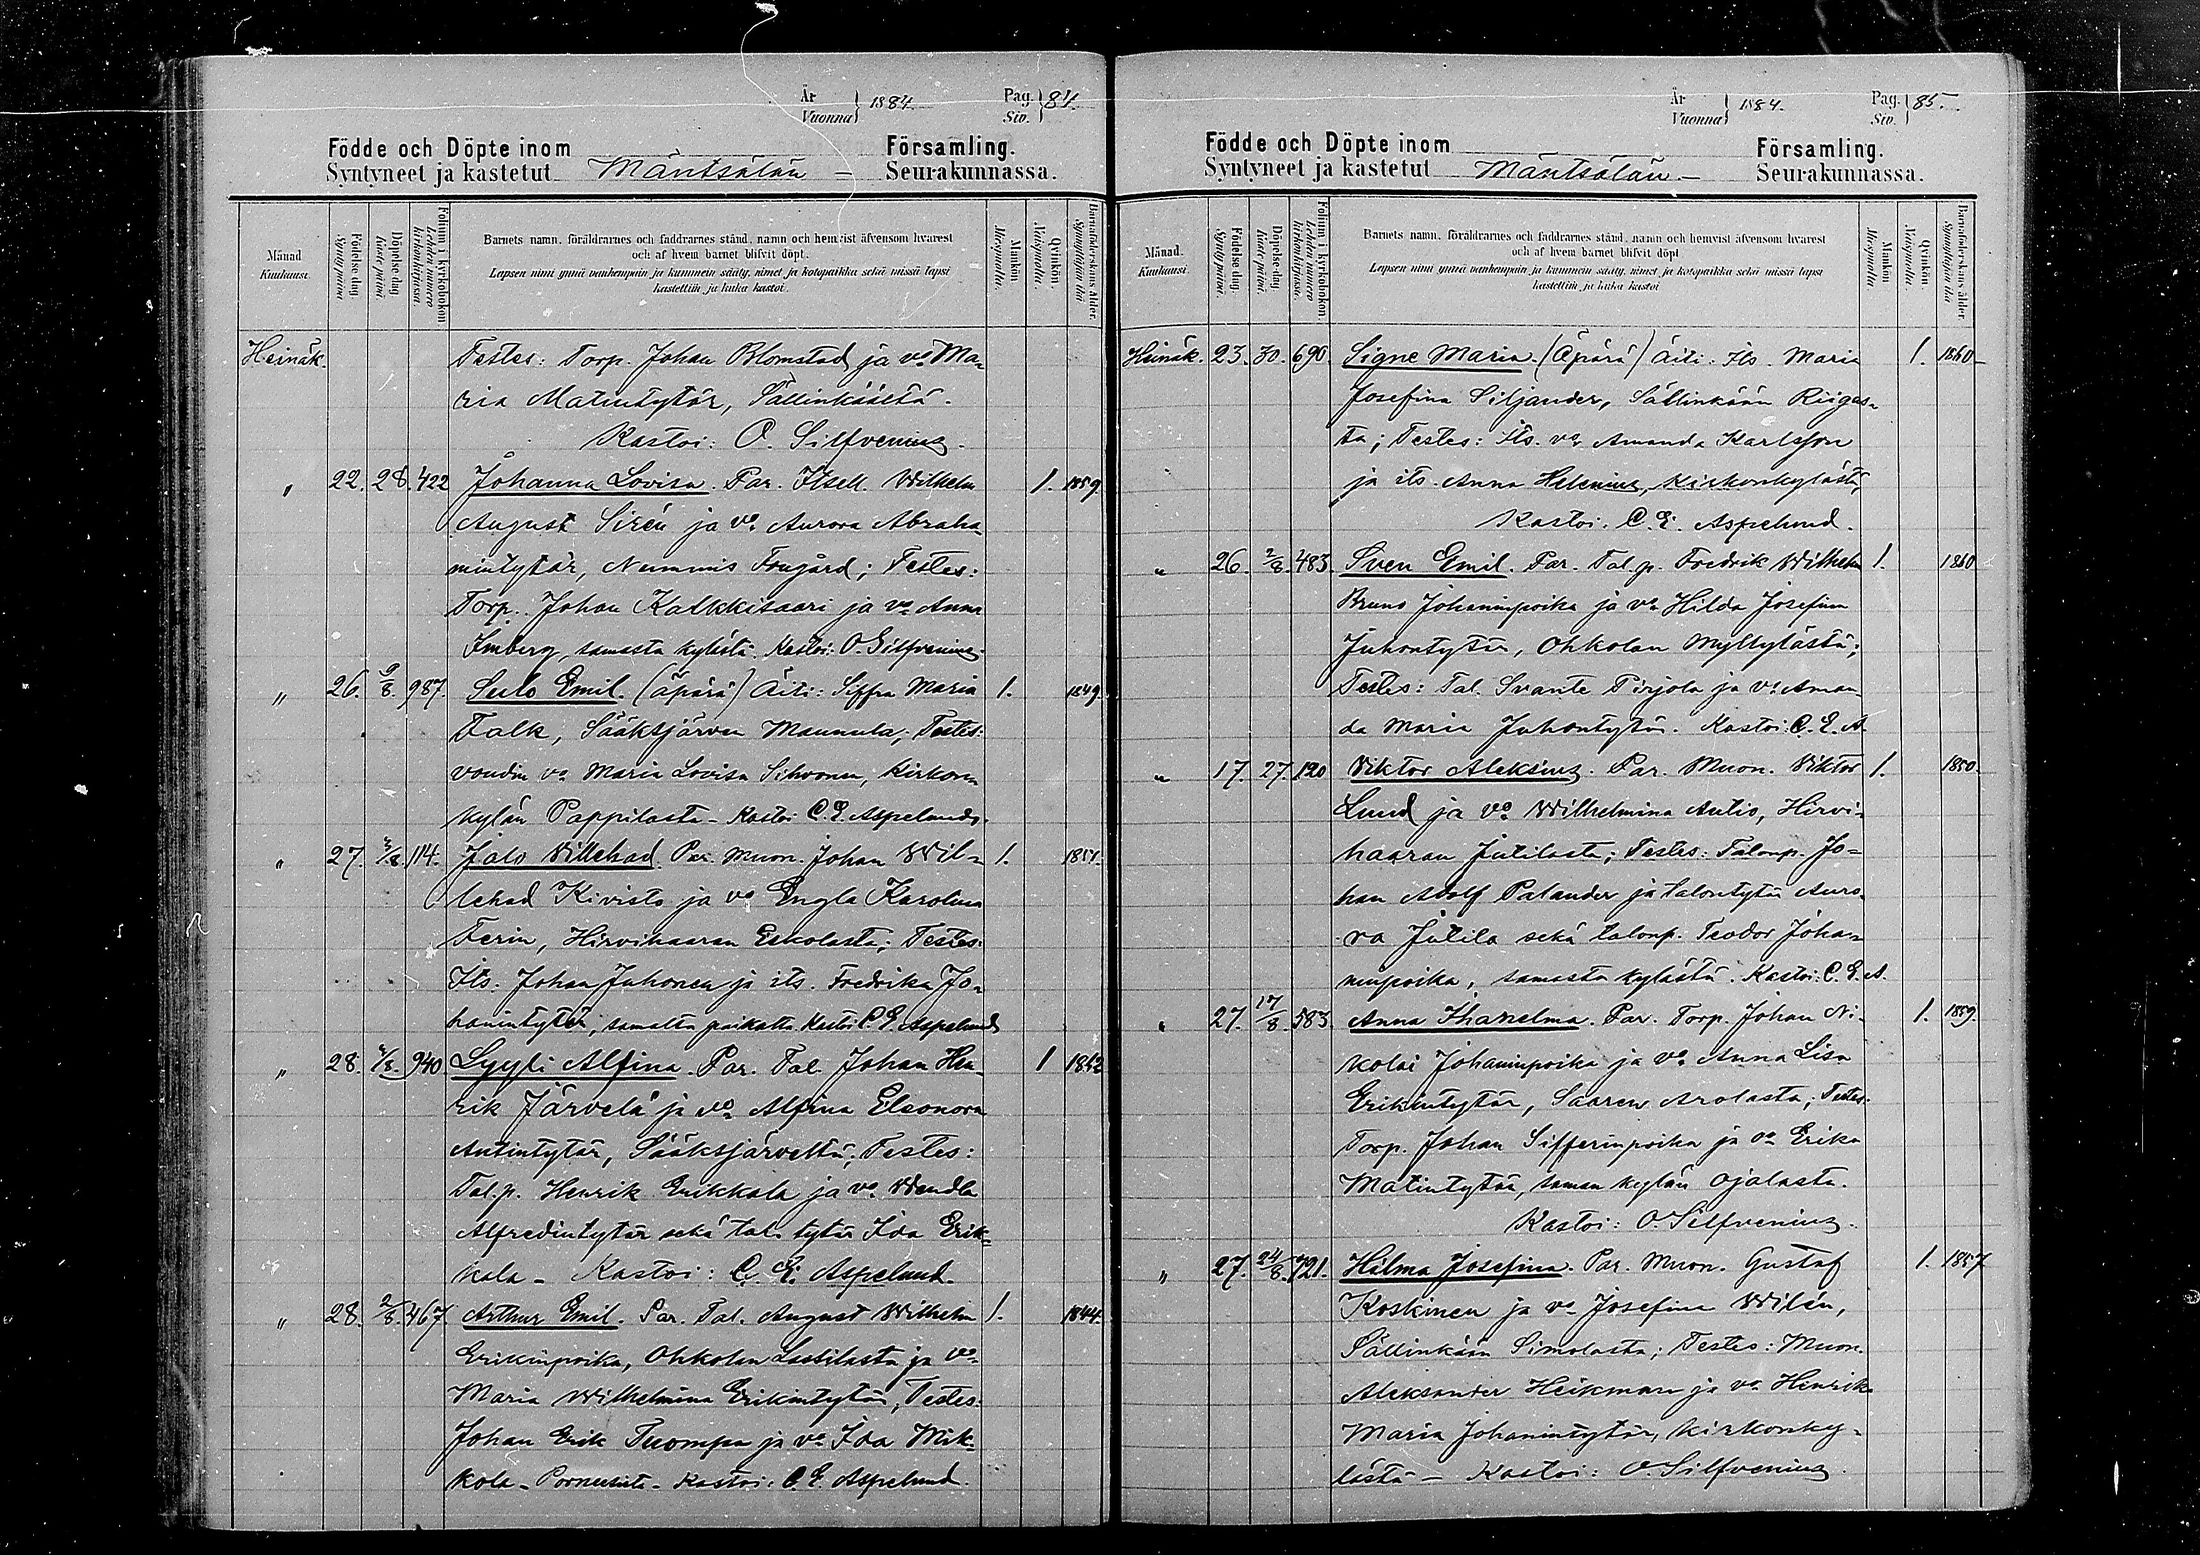 År
Vuonna } 1884.
Pag.
Siv. } 84.
Födde och Döpte inom
Församling.
Syntyneet ja kastetut Mäntsälän — Seurakunnassa.
Månad. Kuukausi.
Födelse-dag. Syntypäivä.
Döpelse-dag. Kaste-päivä.
Folium i kyrkoboken Lehden numero kirkonkirjassa.
Barnets namn, föräldrarnes och faddrarnes stånd, namn och hemvist äfvensom hvarest
och af hvem barnet blifvit döpt.
Lapsen nimi ynnä vanhempain ja kummein sääty, nimet ja kotopaikka sekä missä lapsi
kastettiin ja kuka kastoi.
Mankön. Miespuolta.
Qvinkön. Naispuolta.
Barnaföderskans ålder. Synnyttäjän ikä
Heinäk. Testes: Torp. Johan Blomstad ja vo Ma-
ria Matintytär, Sällinkäältä.
Kastoi: O. Silfvenius.
" 22. 28. 422 Johanna Lovisa. Par. Itsell. Wilhelm 1. 1859.
August Sirén ja vo Aurora Abraha
mintytär, Nummis Frugård; Testes:
Torp. Johan Kalkkisaari ja vo Anna
Imberg, samasta kylästä. Kastoi: O. Silfvenius.
" 26. 9/8. 987. Sulo Emil. (äpärä) Äiti: Siffra Maria 1. 1849.
Falk, Sääksjärven Maunula; Testes:
voudin vo Maria Lovisa Sihvonen, kirkon-
kylän Pappilasta - Kastoi C. E. Aspelund.
" 27. 3/8. 114. Jalo Villehad. Par. Muon. Johan Wil- 1. 1851.
lehad Kivistö ja vo Engla Karolina
Ferin, Hirvihaaran Eskolasta; Testes:
Its. Johan Juhonen ja its. Fredrika Jo-
hanintytär, samalta paikalta. Kastoi C. E. Aspelund
" 28. 4/8. 940 Lyyli Alfina. Par. Tal. Johan Hen- 1 1842
rik Järvelä ja vo Alfina Eleonora
Antintytär, Sääksjärveltä; Testes:
Tal.p. Henrik Erikkala ja vo Wendla
Alfredintytär sekä tal. tytär Ida Erik-
kala - Kastoi: C. E. Aspelund.
" 28. 2/8. 467 Arthur Emil. Par. Tal. August Wilhelm 1. 1844.
Erikinpoika, Ohkolan Lassilasta ja vo
Maria Wilhelmina Erikintytär, Testes:
Johan Erik Tuompa ja vo Ida Mik-
kola - Kastoi: C. E. Aspelund.
År
Vuonna } 1884.
Pag.
Siv. } 85.
Födde och Döpte inom
Församling.
Syntyneet ja kastetut Mäntsälän — Seurakunnassa.
Månad. Kuukausi.
Födelse-dag. Syntypäivä.
Döpelse-dag. Kaste-päivä.
Folium i kyrkoboken Lehden numero kirkonkirjassa.
Barnets namn, föräldrarnes och faddrarnes stånd, namn och hemvist äfvensom hvarest
och af hvem barnet blifvit döpt
Lapsen nimi ynnä vanhempain ja kummein sääty, nimet ja kotopaikka sekä missä lapsi
kastettiin ja kuka kastoi
Mankön. Miespuolta.
Qvinkön. Naispuolta.
Barnaföderskans ålder. Synnyttäjän ikä
Heinäk. 23. 30. 690. Signe Maria. (Äpärä) Äiti: Its. Maria 1. 1860
Josefina Siljander, Sällinkään Riigas-
ta; Testes: Its. vo Amanda Karlsson
ja its. Anna Helenius, Kirkonkylästä,
Kastoi. C. E. Aspelund.
" 26. 2/8. 483. Sven Emil. Par. Tal.p. Fredrik Wilhelm 1. 1860
Bruno Johaninpoika ja vo Hilda Josefina
Juhontytär, Ohkolan Myllylästä;
Testes: Tal. Svante Pirjola ja vo Aman-
da Maria Juhontytär. Kastoi: C. E. A.
" 17. 27. 120 Viktor Aleksius. Par. Muon. Viktor 1. 1850.
Lund ja vo Wilhelmina Antis, Hirvi-
haaran Jutilasta; Testes: Talonp. Jo-
han Adolf Palander ja talontytär Auro-
ra Jutila sekä talonp. Teodor Joha-
ninpoika, samasta kylästä. Kastoi: C. E. A.
" 27. 17/8. 583. Anna Ihanelma. Par. Torp. Johan Ni- 1. 1859.
kolai Johaninpoika ja vo Anna Lisa
Erikintytär, Saaren Arolasta; Testes:
Torp. Johan Sifferinpoika ja vo Erika
Matintytär, saman kylän Ojalasta.
Kastoi: O. Silfvenius.
" 27. 24/8. 721. Hilma Josefina. Par. Muon. Gustaf 1. 1857
Koskinen ja vo Josefina Wilén,
Sällinkään Simolasta; Testes: Muon.
Aleksander Heikman ja vo Henrika
Maria Johanintytär, kirkonky-
lästä — Kastoi: O. Silfvenius.